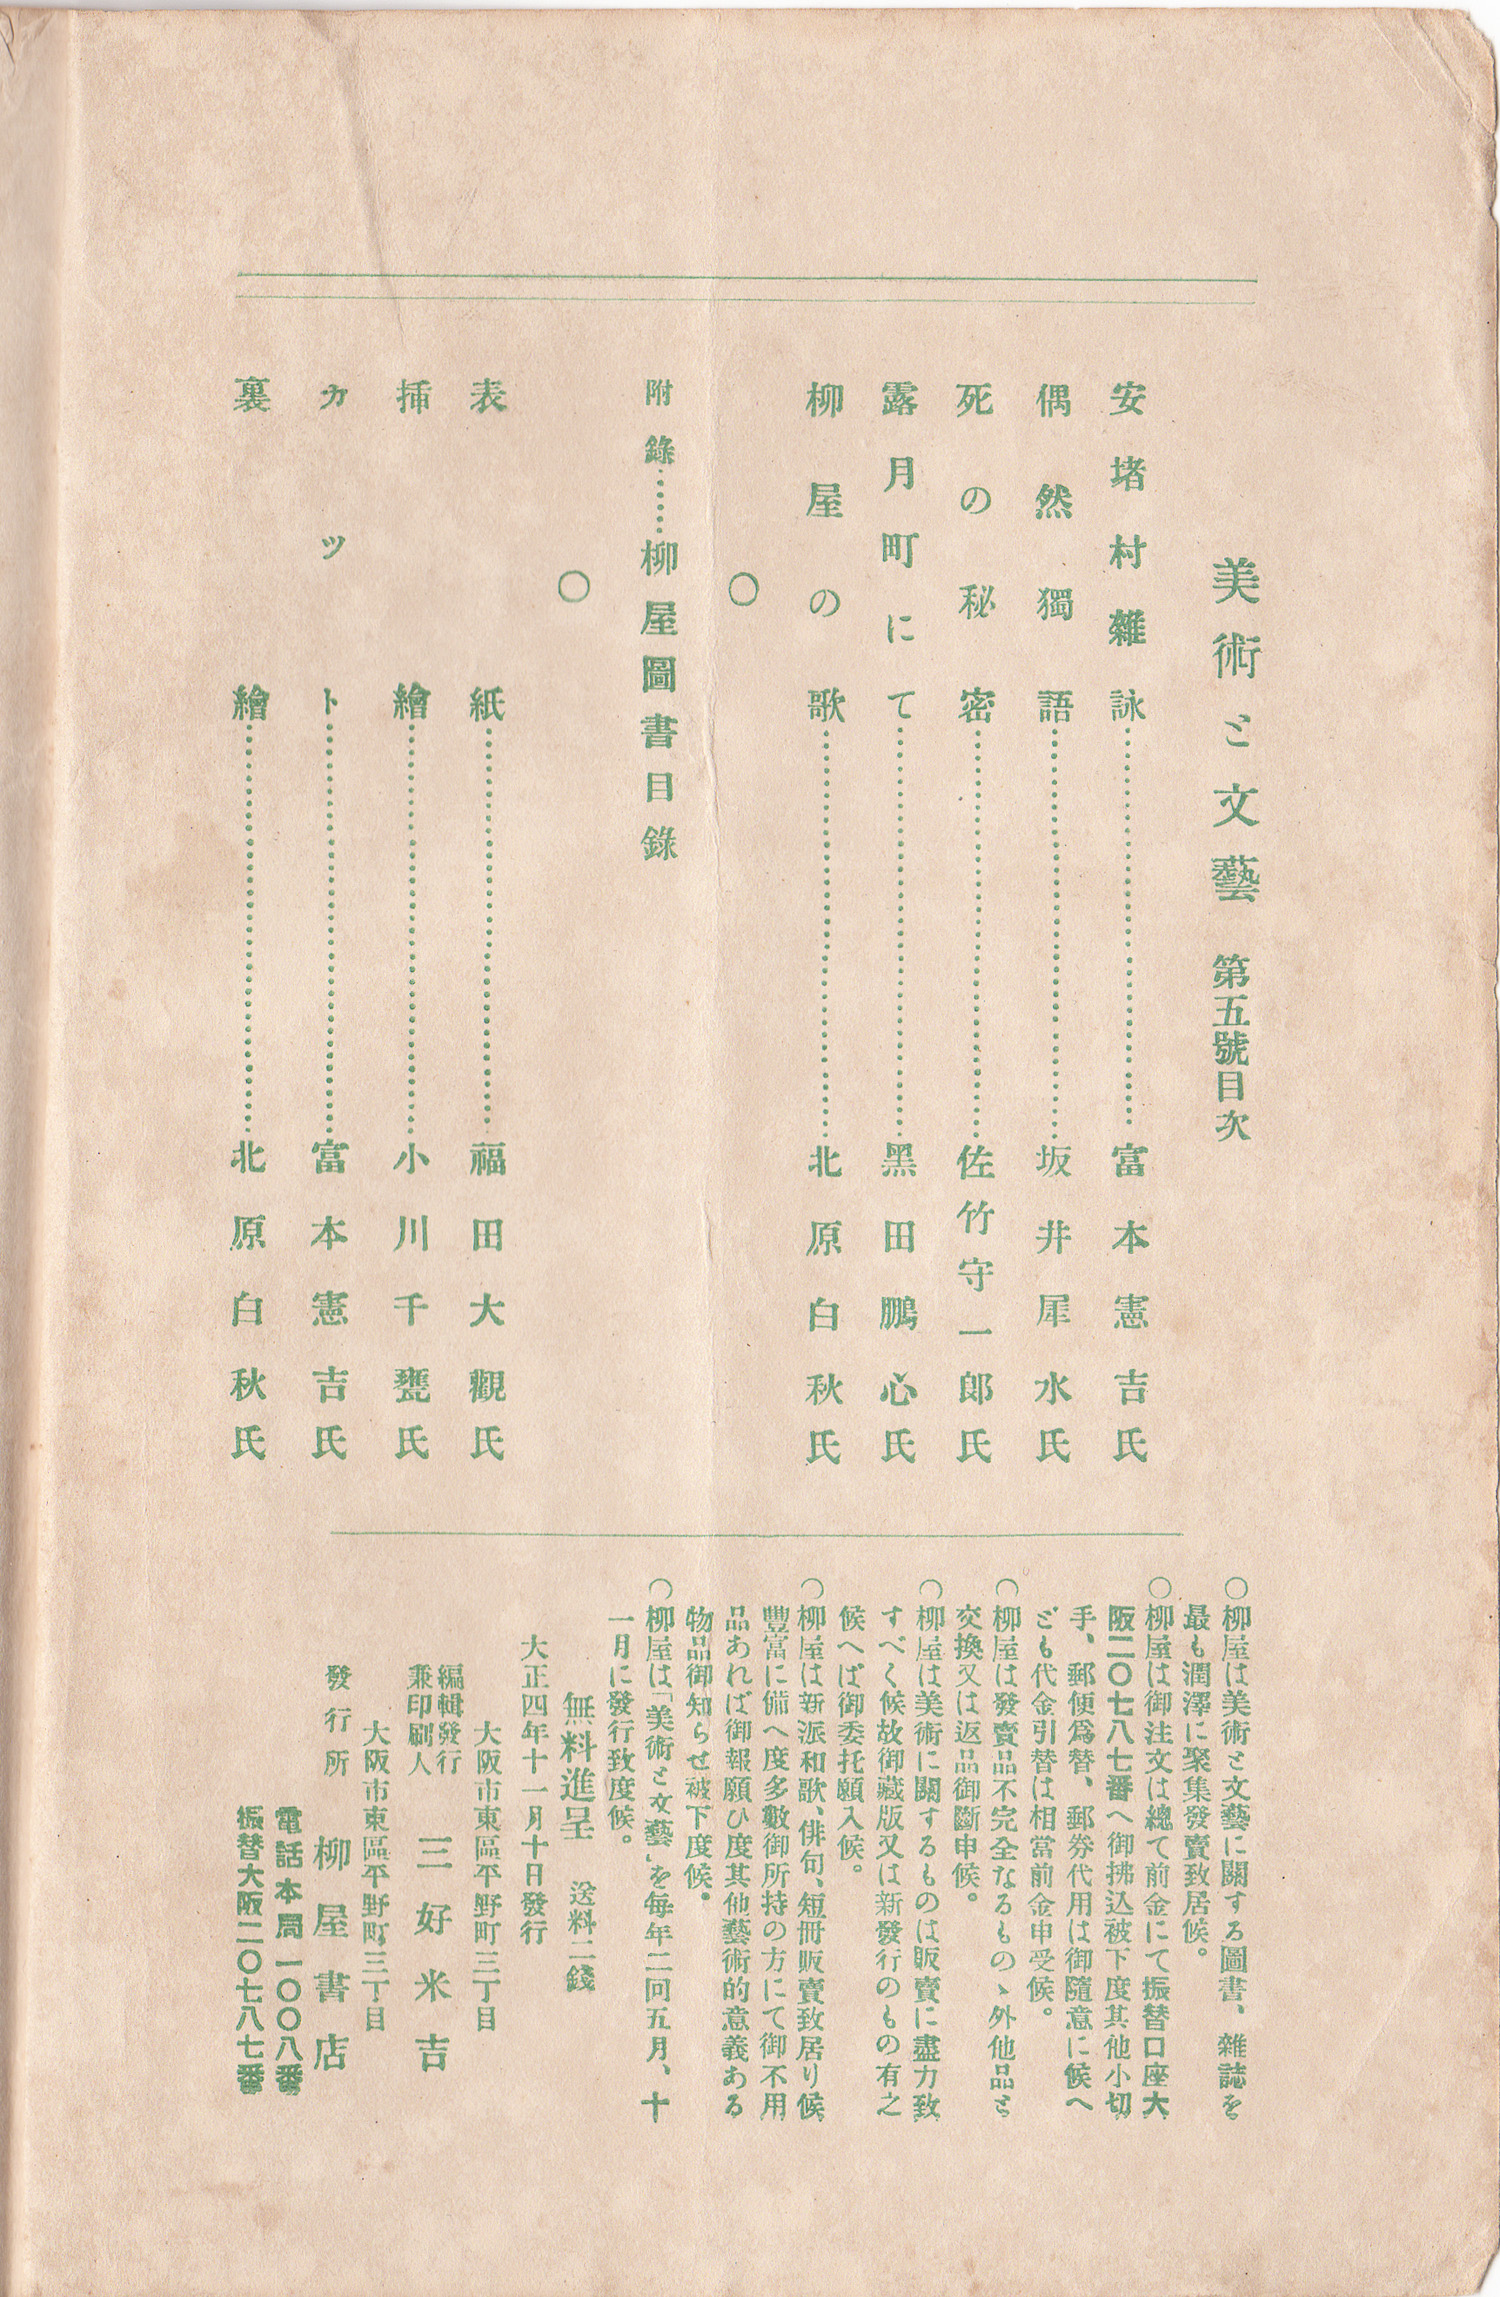 美術と文藝　第五號目次
安堵村雜詠…………富本憲吉氏
偶然獨語…………坂井犀水氏
死の秘密…………佐竹守一郎氏
露月町にて…………黑田鵬心氏
柳屋の歌…………北原白秋氏
○
附錄……柳屋圖書目錄
○
表紙…………福田大觀氏
挿繪…………小川千甕氏
カット…………富本憲吉氏
裏繪…………北原白秋氏
○柳屋は美術と文藝に關する圖書、雜誌を
最も潤澤に聚集發賣致居候。
○柳屋は御注文は總て前金にて振替口座大
阪二〇七八七番へ御拂込被下度其他小切
手、郵便爲替、郵券代用は御隨意に候へ
ども代金引替は相當前金申受候。
○柳屋は發賣品不完全なるものゝ外他品と
交換又は返品御斷申候。
○柳屋は美術に關するものは販賣に盡力致
すべく候故御藏版又は新發行のもの有之
候へば御委托願入候。
○柳屋は新派和歌、俳句、短冊販賣致居り候
豐富に備へ度多數御所持の方にて御不用
品あれば御報願ひ度其他藝術的意義ある
物品御知らせ被下度候。
○柳屋は「美術と文藝」を每年二回五月、十
一月に發行致度候。
無料進呈　送料二錢
大正四年十一月十日發行
大阪市東區平野町三丁目
編輯發行
兼印刷人　三好米吉
大阪市東區平野町三丁目
發行所　柳屋書店
電話本局一〇〇八番
振替大阪二〇七八七番